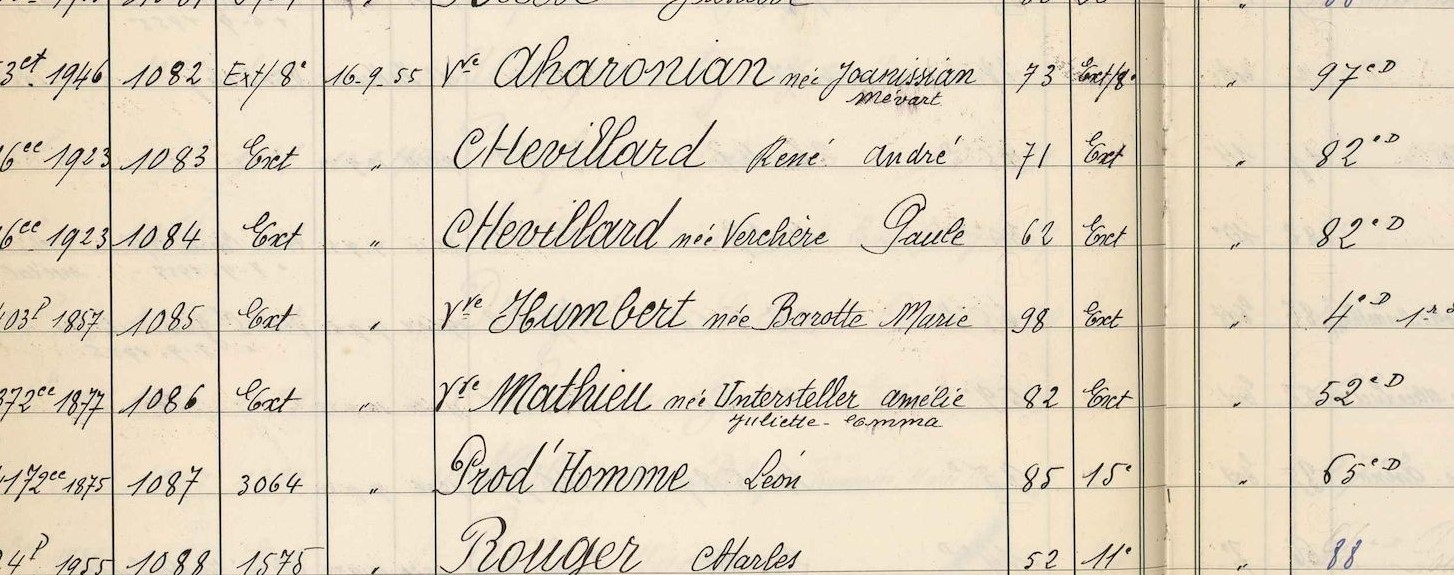 3ct 1946 1082 Ext/8e 16-9-55 Vve Aharonian née Joanissian 73 Ext/8e " 97e D
Mévart
6cc 1923 1083 Ext " CHevillard René André 71 Ext " 82e D
6cc 1923 1084 Ext " CHevillard née Verchère Paule 62 Ext " 82e D
103P 1857 1085 Ext " Vve Humbert née Barotte Marie 98 Ext " 4e D 1re
372cc 1877 1086 Ext " Vve Mathieu née Untersteller Amélie 82 Ext " 52e D
Juliette-Emma
1172cc 1875 1087 3064 " Prod'Homme Léon 85 15e " 65e D
4P 1955 1088 1575 " Rouger CHarles 52 11e " 88